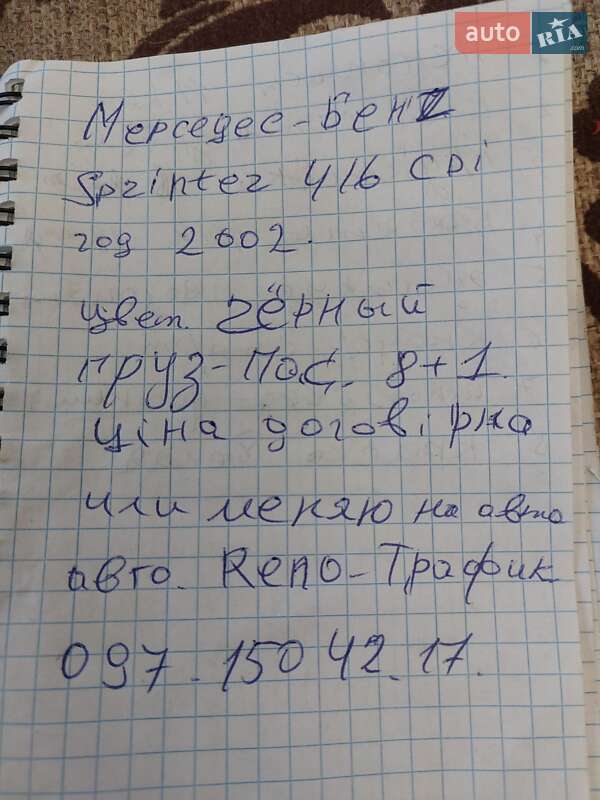 auto RIA .com
Мерседес-Бенz
Sprinter 416 CDi
год 2002.
цвет. чёрный
груз-пос. 8+1.
ціна договірна
или меняю на авто
авто. Reno-Трафик
097.150 42.17.